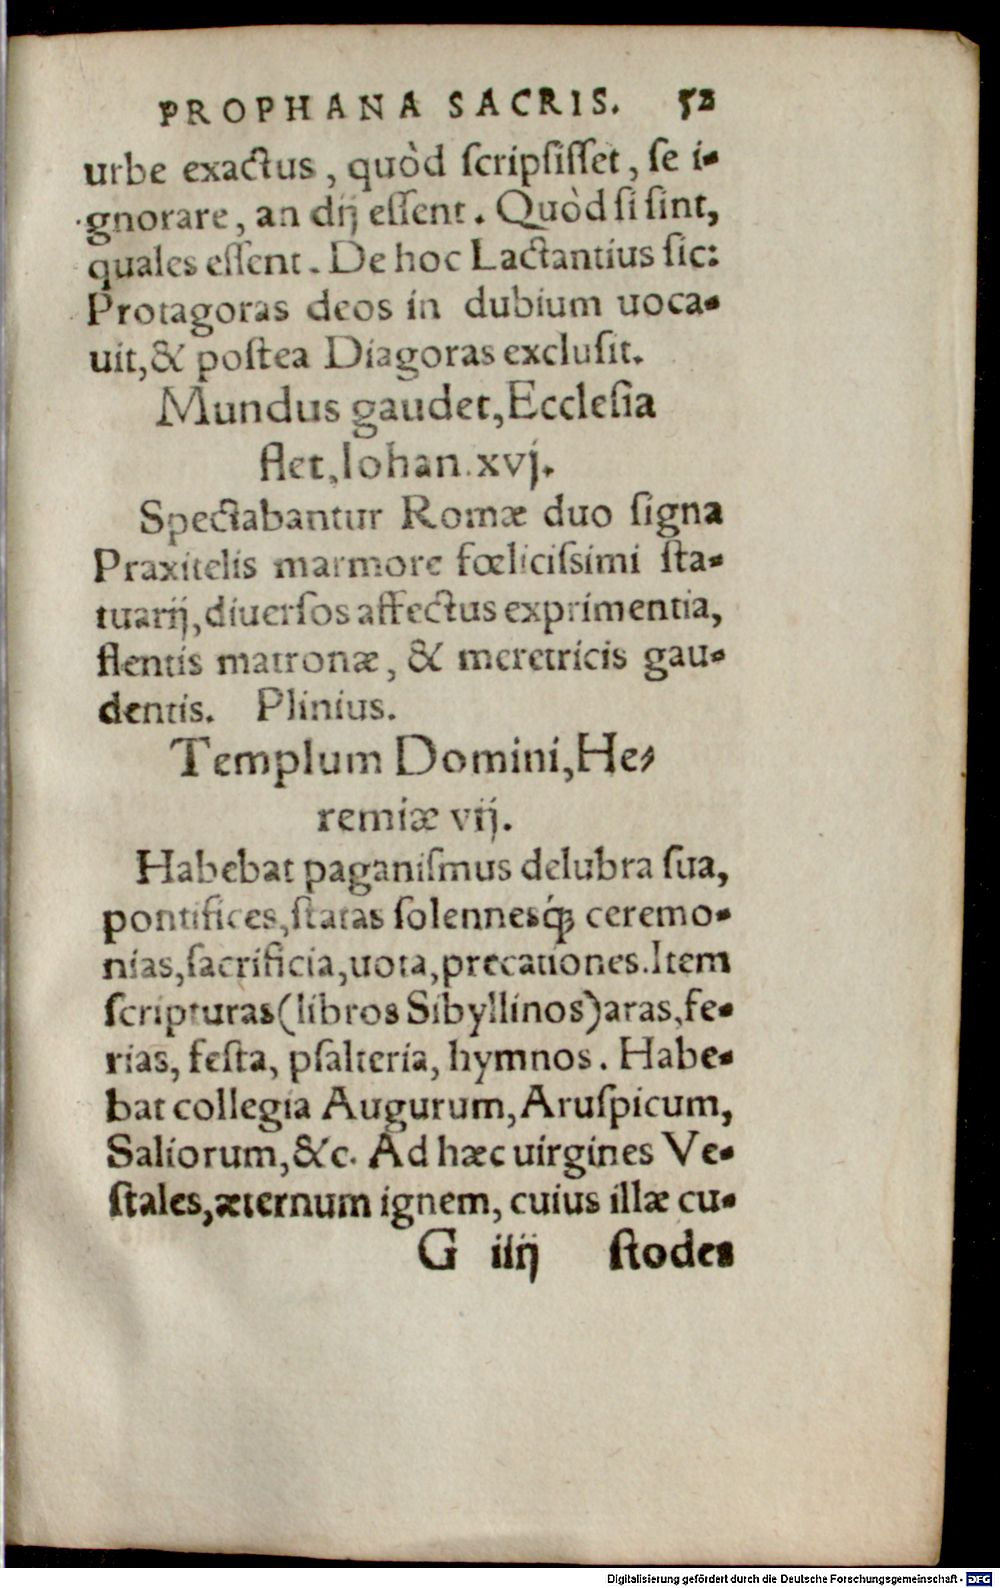 PROPHANA SACRIS. 52
urbe exactus, quòd scripsisset, se i-
gnorare, an dij essent. Quòd si sint,
quales essent. De hoc Lactantius sic:
Protagoras deos in dubium uoca-
uit, & postea Diagoras exclusit.
Mundus gaudet, Ecclesia
flet, Iohan. xvj.
Spectabantur Romæ duo signa
Praxitelis marmore fœlicissimi sta-
tuarij, diuersos affectus exprimentia,
flentis matronæ, & meretricis gau-
dentis. Plinius.
Templum Domini, He-
remiæ vij.
Habebat paganismus delubra sua,
pontifices, statas solennesq́; ceremo-
nias, sacrificia, uota, precationes. Item
scripturas (libros Sibyllinos) aras, fe-
rias, festa, psalteria, hymnos. Habe-
bat collegia Augurum, Aruspicum,
Saliorum, &c. Ad hæc uirgines Ve-
stales, æternum ignem, cuius illæ cu-
G iiij stodes
Digitalisierung gefördert durch die Deutsche Forschungsgemeinschaft - DFG